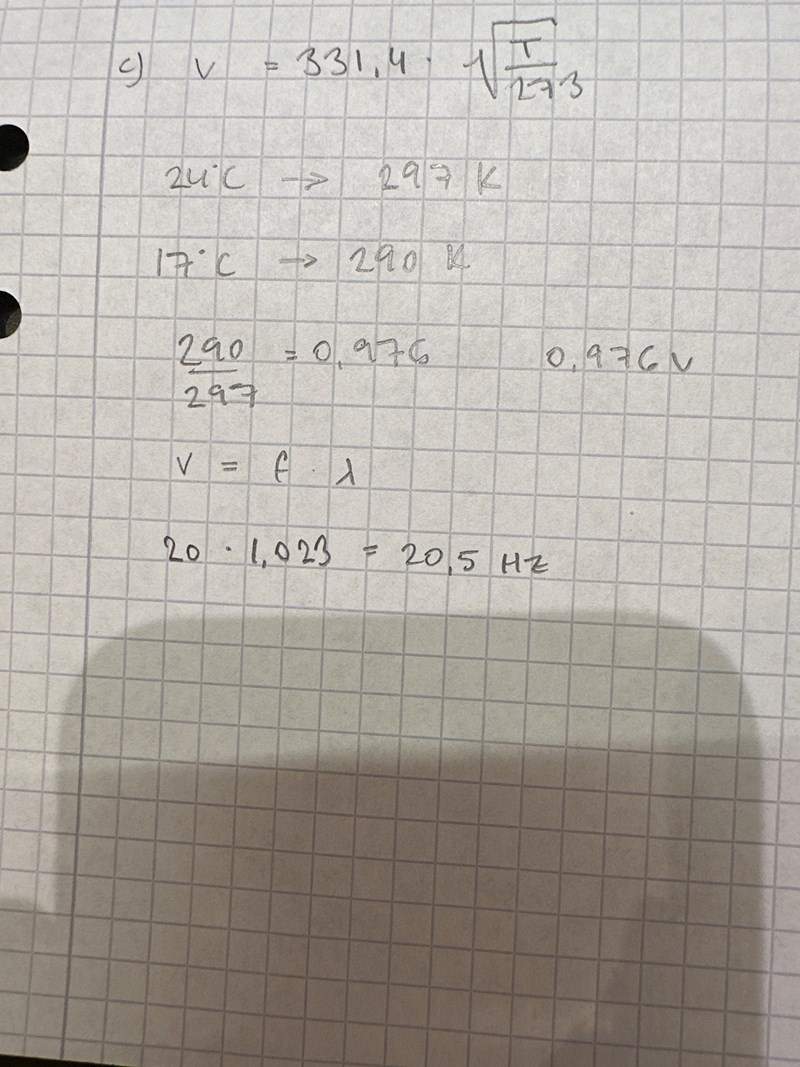 c) v = 331,4 · √(T/273)
24°C → 297 K
17°C → 290 K
290/297 = 0,976 0,976 v
v = f · λ
20 · 1,023 = 20,5 Hz